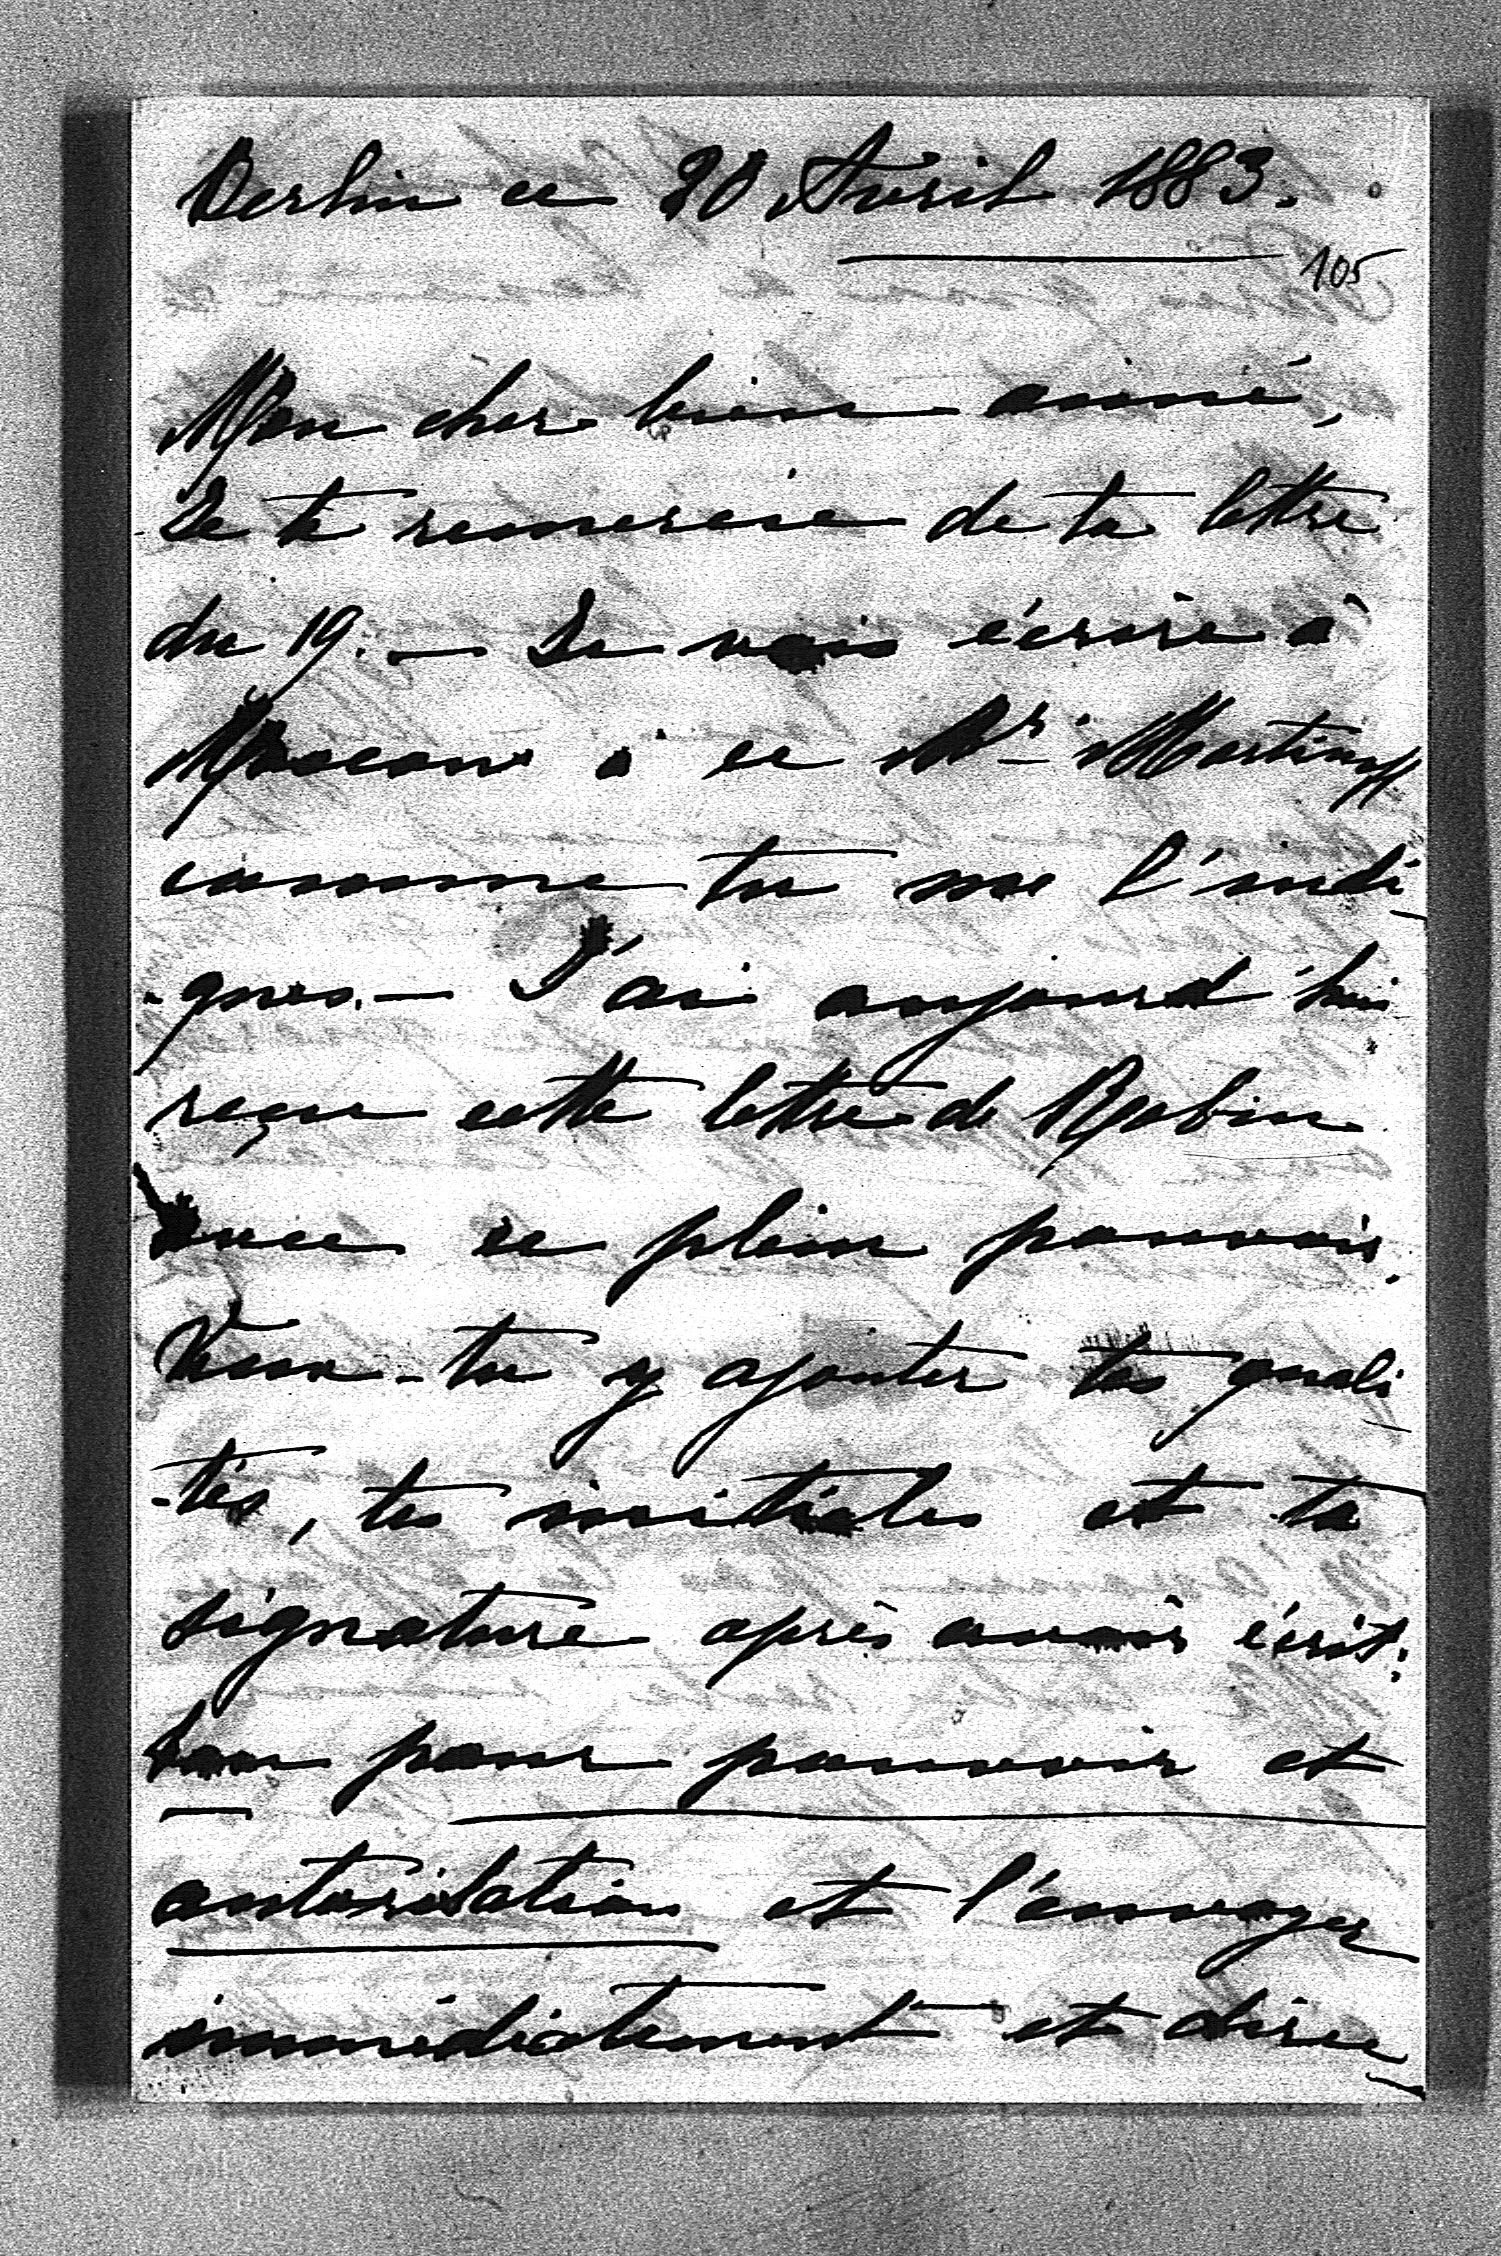 Berlin ce 20 Avril 1883.
105
Mon cher bien aimé,
Je te remercie de ta lettre
du 19. — Je vais écrire à
Moscou à ce Mr. Martinoff
comme tu me l'indi-
-ques. — J'ai aujourd'hui
reçu cette lettre de Robin
avec ce plein pouvoir.
Veux-tu y ajouter tes quali-
-tés, tes initiales et ta
signature après avoir écrit:
bon pour pouvoir et
autorisation et l'envoyer
immédiatement et direc-